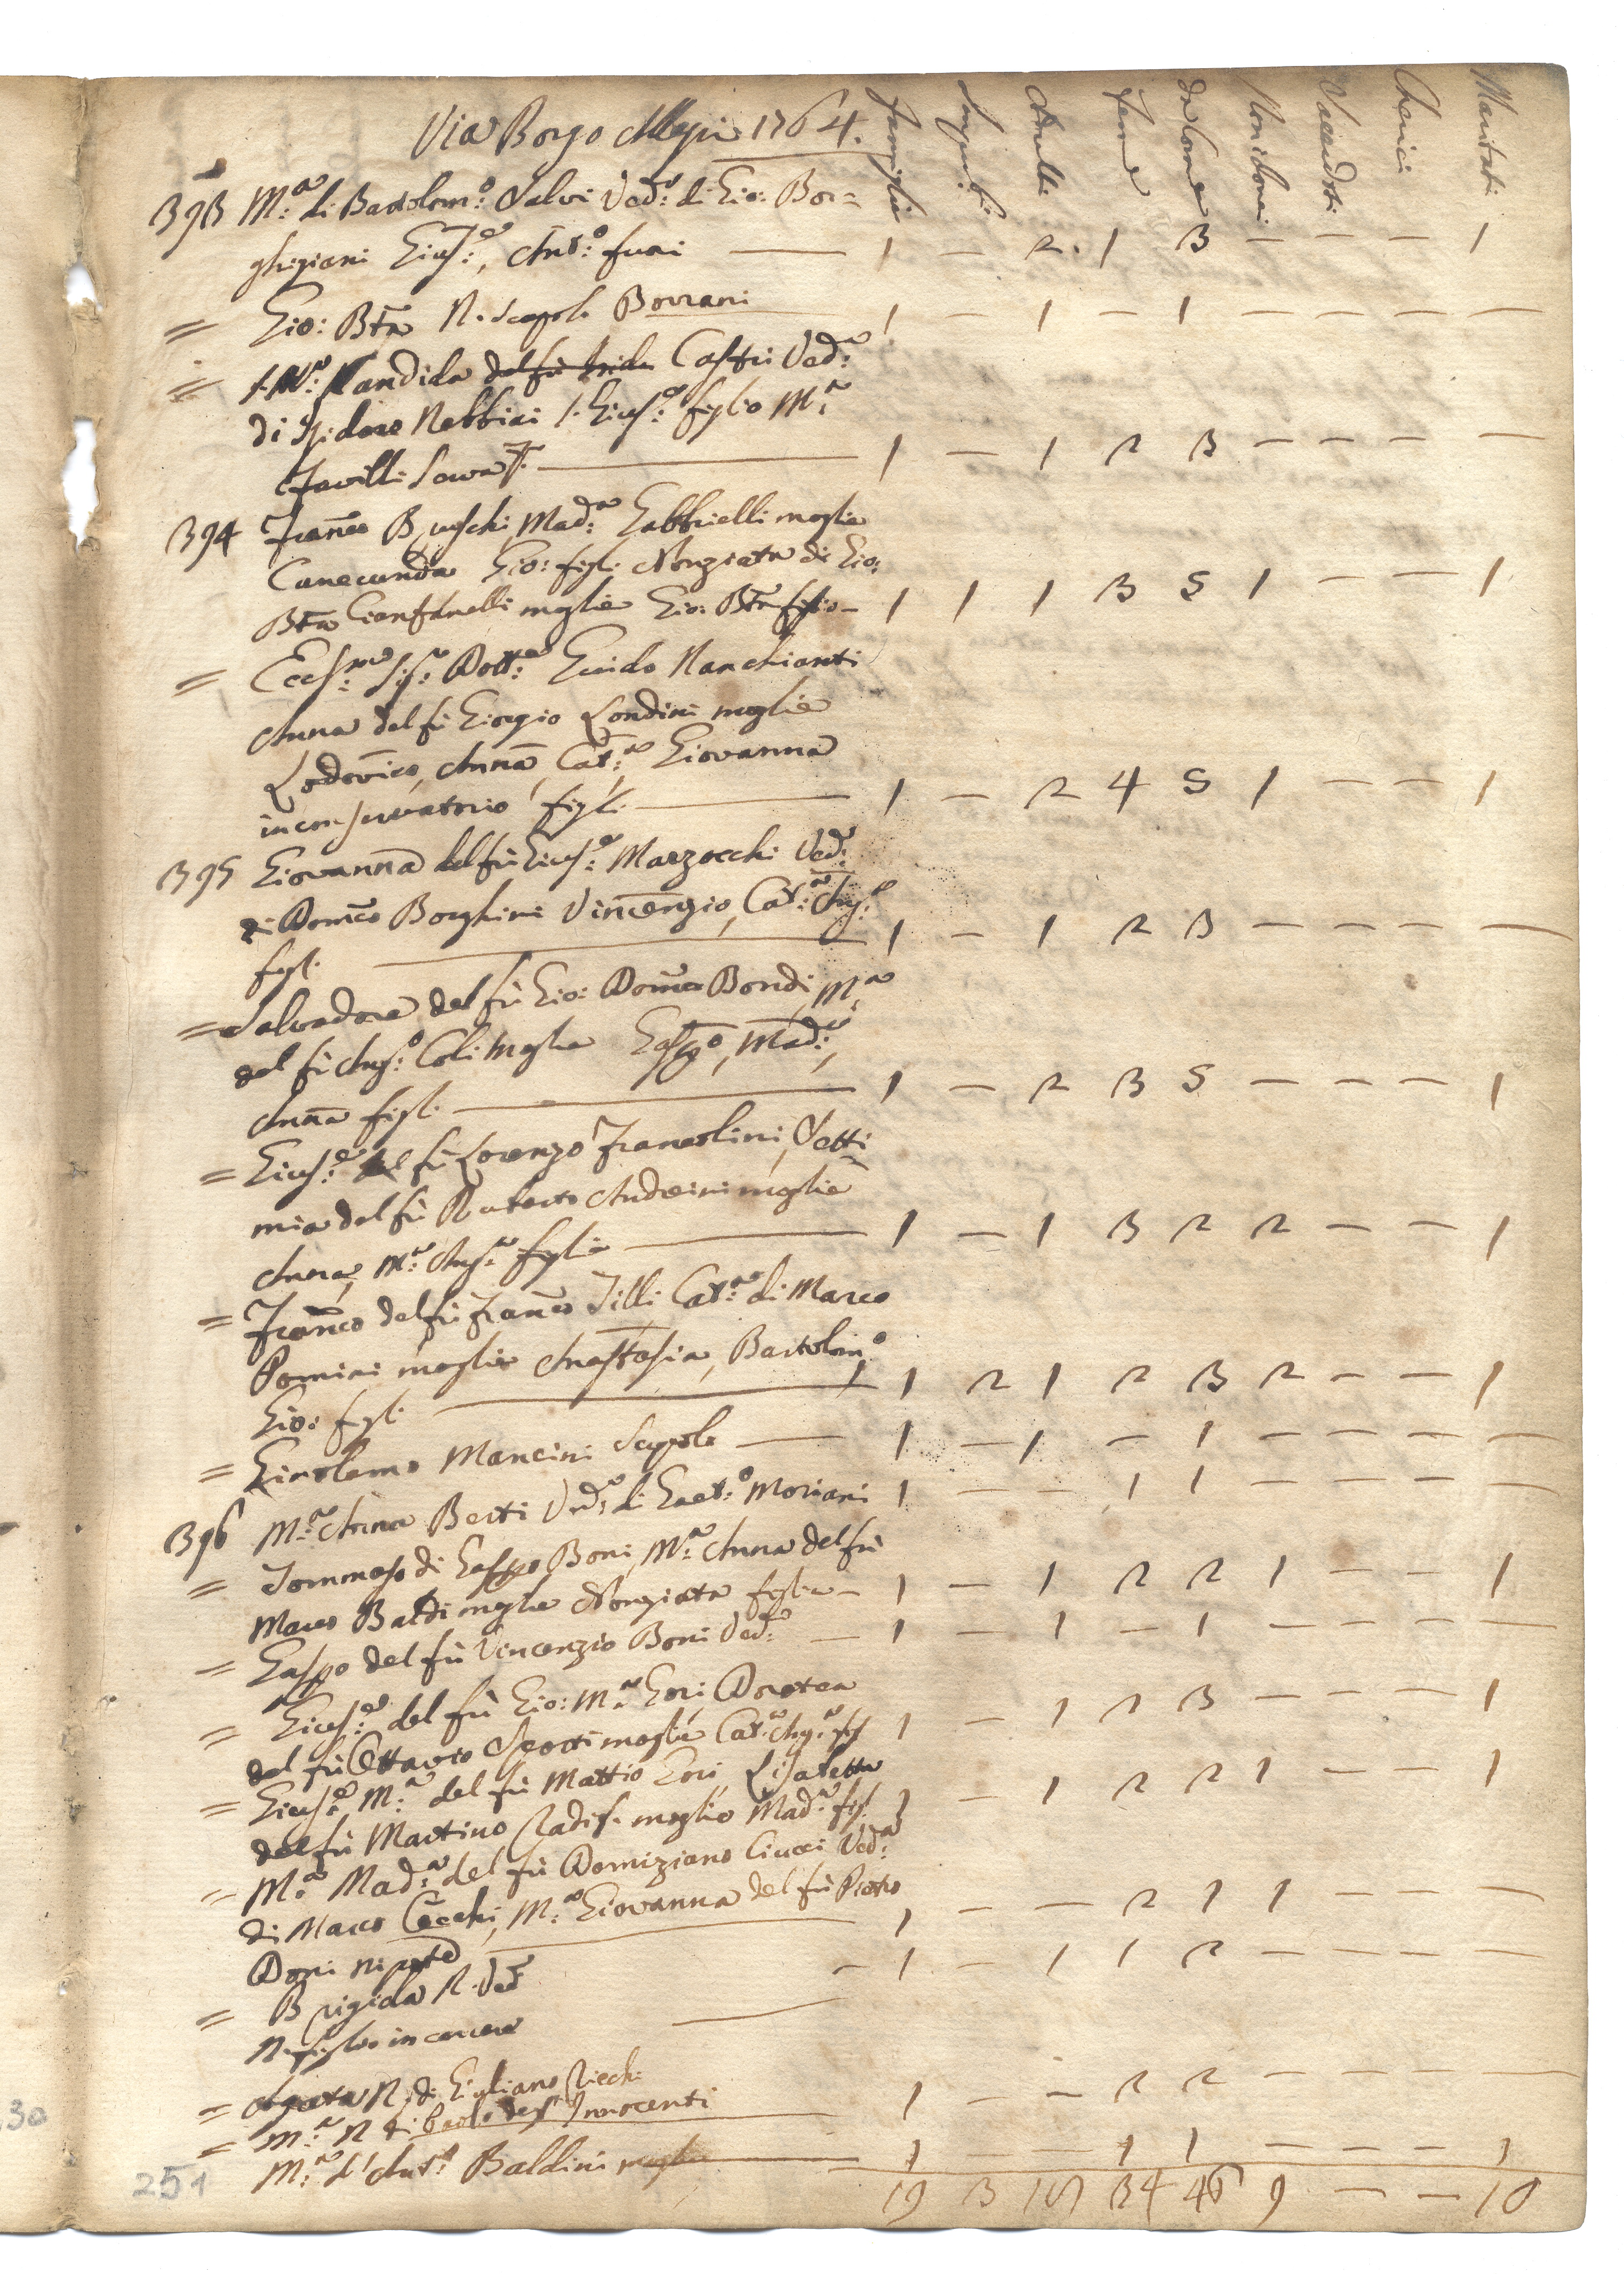 Via Borgo Allegri 1764.
Famiglie Adulti Feme da Com.e Non Com. Sacerdoti Cherici Maritati
393 M.a di Bartolom.o Salvi Ved.a di Gio: Bor=
ghigiani Gius.e, Ant.o fuori — 1 — 2. 1 3 — — — 1
= Gio: Bta N. Scapolo Borrani 1 1 — 1 — — — —
= Candida del fù Castri Ved.a
di Isidoro Nebbiai Gius.e figlio M.a
Favilli — 1 — 1 2 3 — — — —
394 Fran.co Bruschi Mad.a Gabbrielli moglie
Cunecunda Gio: figl. Nunziata di Gio:
Bta Gianfanelli moglie Gio: Bta figlio — 1 1 1 3 5 1 — — 1
= Eccl.mo Sig.r Dott.e Guido Nanchianti
Anna del fù Giorgio Londini moglie
Lodovico, Anna, Cat.a Giovanna
in conservatorio figli — 1 — 2 4 5 1 — — 1
395 Giovanna del fù Gius.e Marzocchi Ved.a
di Dom.co Borghini Vincenzio, Cat.a Ang.a
figl. — 1 — 1 2 3 — — — —
= Salvadore del fù Gio: Dom.co Bondi, M.a
del fù Ang.o Coli moglie Gasp.o, Mad.a,
Anna figl. — 1 — 2 3 5 — — — 1
= Gius.e del fù Lorenzo Francolini, Setti
mia del fù Ruberto Andreini moglie
Anna, M.a Ang.a figlie — 1 — 1 3 2 2 — — 1
= Fran.co del fù Fran.co Tilli Cat.a di Marco
Pomini moglie Anastasia, Bartolom.o
Gio: figl. — 1 2 1 2 3 2 — — 1
= Girolamo Mancini Scapolo — 1 — 1 — 1 — — — —
396 M.a Anna Berti Ved.a di Gaet.o Moriani 1 — — 1 1 — — — —
= Tommaso di Gaspo Boni, M.a Anna del fù
Marco Baldi moglie Nunziata figlia — 1 — 1 2 2 1 — — 1
= Gaspo del fù Vincenzio Boni Ved.o — 1 — 1 — 1 — — — —
= Gius.e del fù Gio: M.a Gori, Dorotea
del fù Ottavio moglie Cat.a Ang.a figl 1 — 1 2 3 — — — 1
= Gius.e M.a del fù Mattio Gori, Lisabetta
del fù Martino moglie Mad.a figl. 1 — 1 2 2 1 — — 1
= M.a Mad.a del fù Domiziano Ciucci Ved.a
di Marco Cecchi, M.a Giovanna del fù Pietro
Doni nipote — 1 — — 2 1 1 — — —
= Brigida N. Ved.a — 1 — 1 1 2 — — — —
N. figlio in carcere —
= Agata N. di Gigliano 1 — — 2 2 — — — —
= M.a N di Paolo degl' Innocenti
M.a d' Ant.o Baldini moglie — 1 — — 1 1 — — — 1
19 3 34 46 9 — — 10
251
30